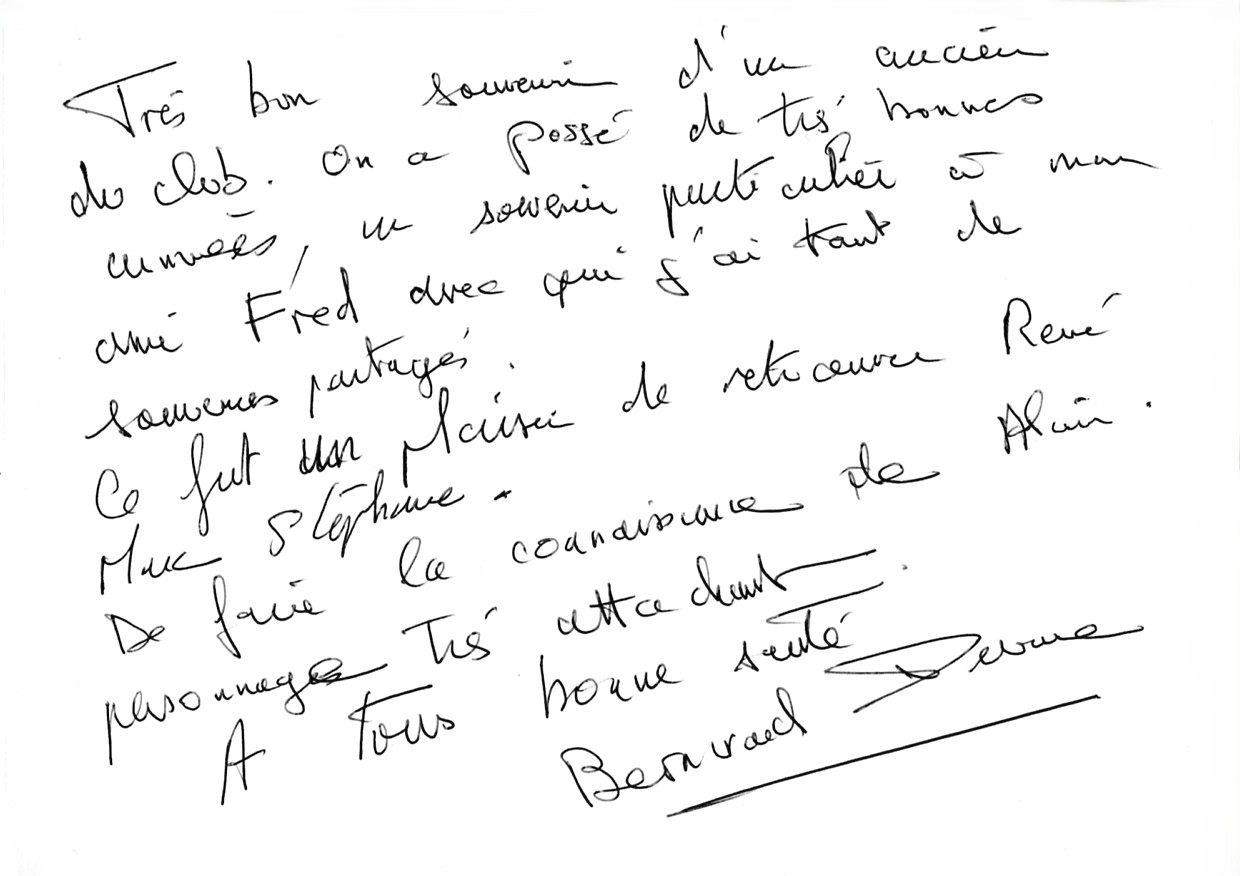 Très bon souvenir d'un ancien
du club. On a passé de très bonnes
années, un souvenir particulier à mon
ami Fred avec qui j'ai tant de
souvenirs partagés.
Ce fut un plaisir de retrouver René
Marc Stéphane.
De faire la connaissance de Alain.
personnage très attachant.
A tous bonne santé
Bernard